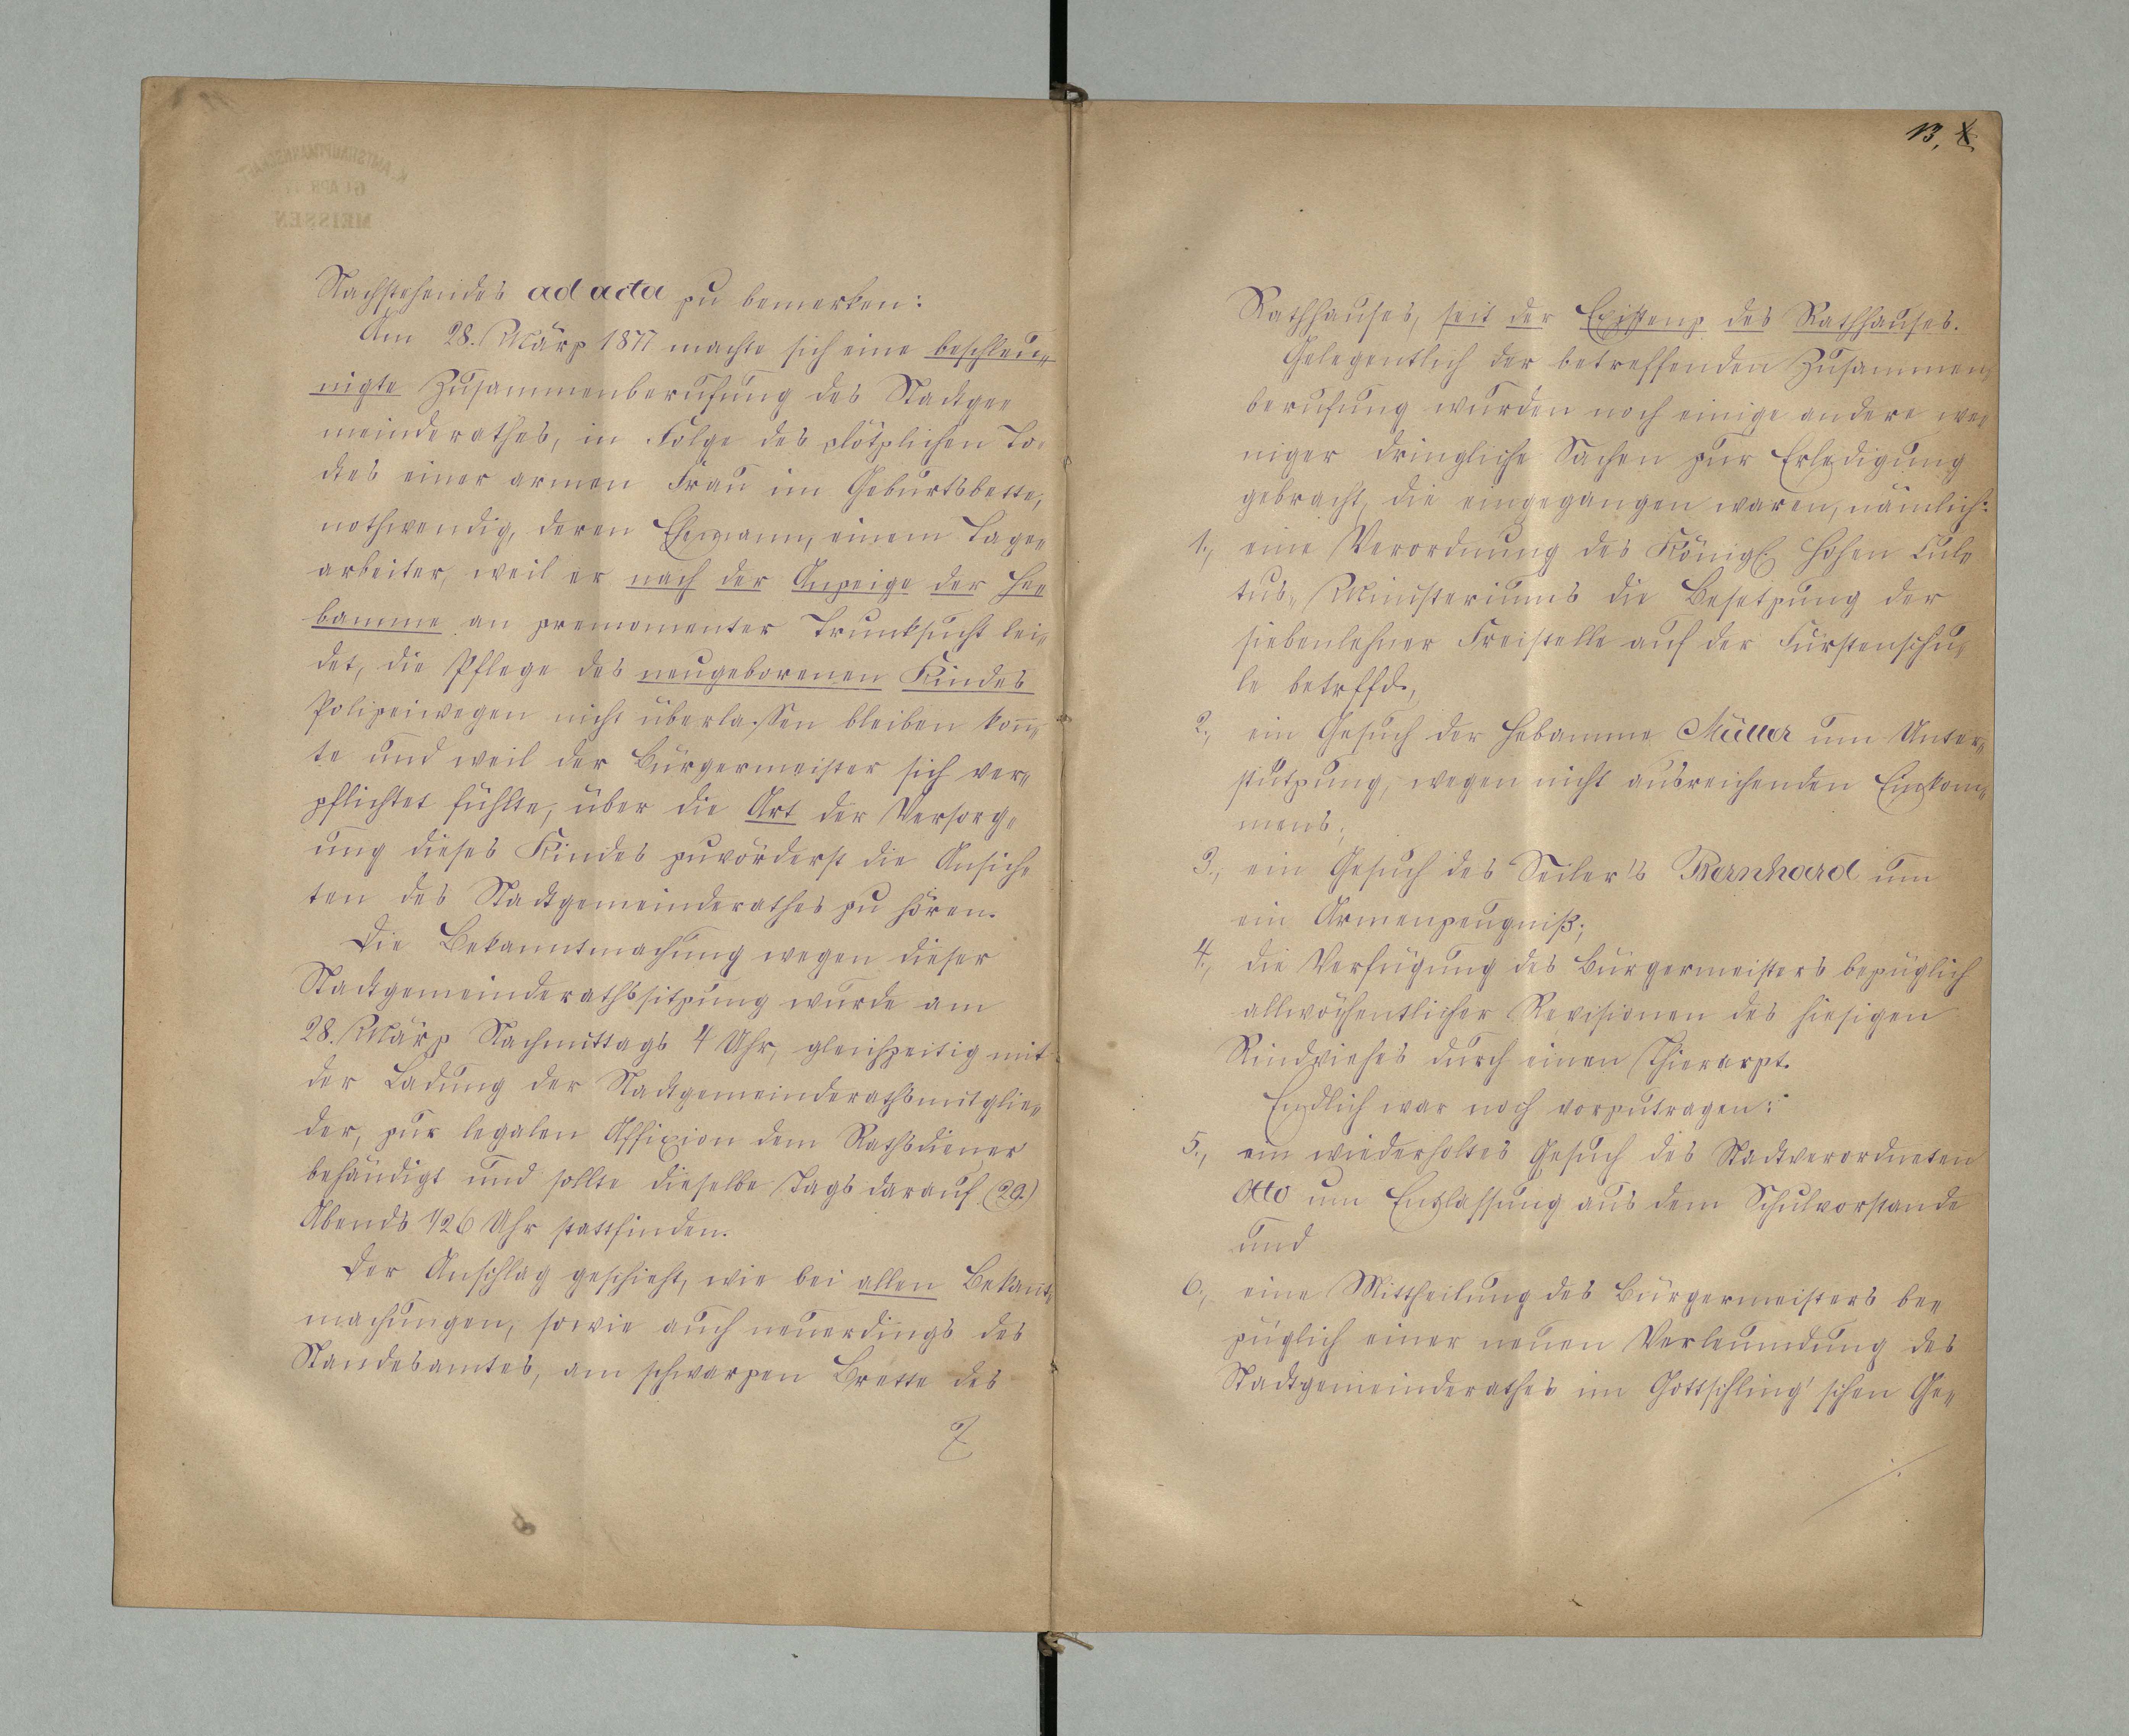 Nachstehendes ad acta zu bemerken:
Am 28. März 1877 machte sich eine beschleu-
nigte Zusammenberufung des Stadtge-
meinderathes, in Folge des plötzlichen To-
des einer armen Frau im Geburtsbette,
nothwendig, deren Ehemann, einem Tage-
arbeiter, weil er nach der Anzeige der He-
bamme an premomenter Trunksucht lei-
det, die Pflege des neugeborenen Kindes
Polizeiwegen nicht überlassen bleiben konn-
te und weil der Bürgermeister sich ver-
pflichtet fühlte, über die Art der Versorg-
ung dieses Kindes zuvörderst die Ansich-
ten des Stadtgemeinderathes zu hören.
Die Bekanntmachung wegen dieser
Stadtgemeinderathssitzung wurde am
28. März Nachmittags 4 Uhr, gleichzeitig mit
der Ladung der Stadtgemeinderathsmitglie-
der, zur legalen Affixion dem Rathsdiener
behändigt und sollte dieselbe Tags darauf (29.)
Abends 1/26 Uhr stattfinden.
Der Anschlag geschieht, wie bei allen Bekannt-
machungen, sowie auch neuerdings des
Standesamtes, am schwarzen Brette des
K. AMTSHAUPTMANNSCHAFT
MEISSEN
13.
Rathhauses, seit der Existenz des Rathhauses.
Gelegentlich der betreffenden Zusammen-
berufung wurden noch einige andere we-
niger dringliche Sachen zur Erledigung
gebracht, die eingegangen waren, nämlich:
1., eine Verordnung des Königl. hohen Cul-
tus-Ministeriums die Besetzung der
siebenlehner Freistelle auf der Fürstenschu-
le betrffd.,
2., ein Gesuch der Hebamme Müller um Unter-
stützung, wegen nicht ausreichenden Einkom-
mens;
3., ein Gesuch des Seiler's Bernhard um
ein Armenzeugniß;
4., die Verfügung des Bürgermeisters bezüglich
allwöchentlicher Revisionen des hiesigen
Rindviehes durch einen Thierarzt.
Endlich war noch vorzutragen:
5., ein wiederholtes Gesuch des Stadtverordneten
Otto um Entlassung aus dem Schulvorstande
und
6., eine Mittheilung des Bürgermeisters be-
züglich einer neuen Verleumdung des
Stadtgemeinderathes im Gottschling'schen Ge-